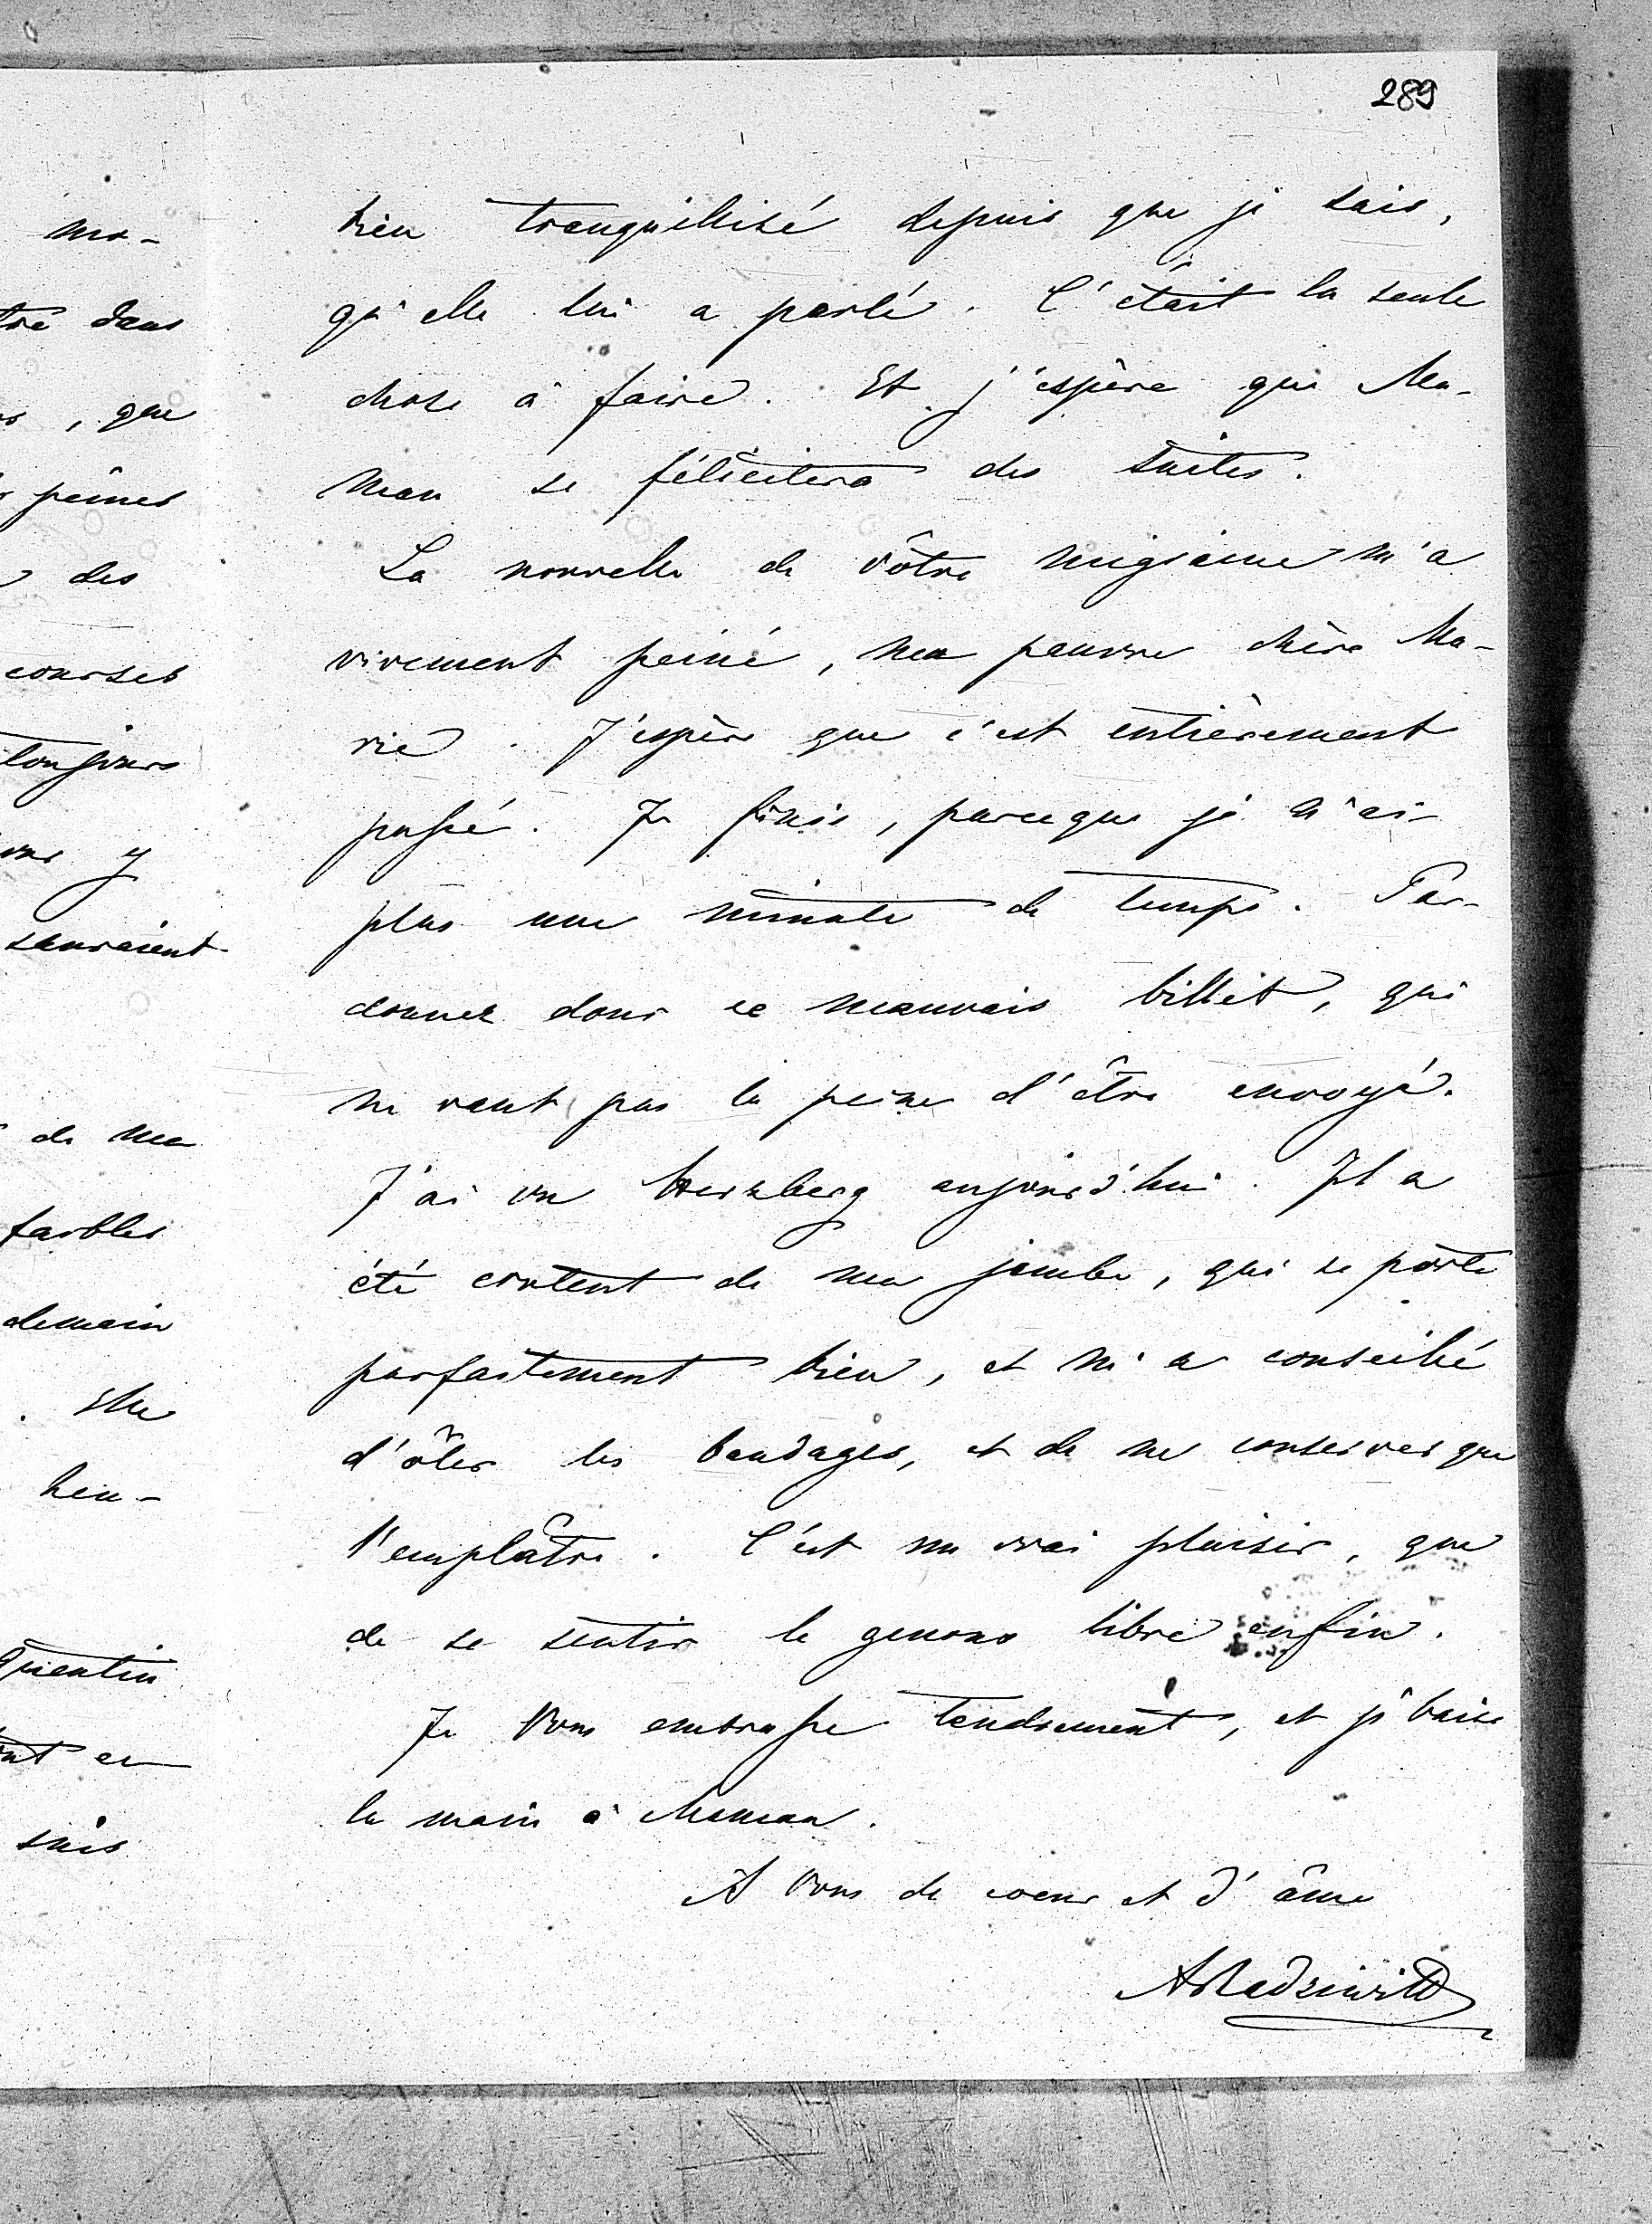 289
bien tranquillisé depuis que je sais,
qu'elle lui a parlé. C'était la seule
chose à faire. Et j'espère que Ma-
man se félicitera des suites.
La nouvelle de vôtre migraine m'a
vivement peiné, ma pauvre chère Ma-
rie. J'espère que c'est entièrement
passé. Je finis, parceque je n'ai
plus une minute de temps. Par-
donnez donc ce mauvais billet, qui
ne vaut pas la peine d'être envoyé.
J'ai vu Herzberg aujourd'hui. Il a
été content de ma jambe, qui se porte
parfaitement bien, et m'a conseillé
d'ôter les bandages, et de ne conserver que
l'emplâtre. C'est un vrai plaisir, que
de se sentir le genoux libre enfin.
Je Vous embrasse tendrement, et je baise
la main à Maman.
A Vous de coeur et d'âme
ARadziwill
mo-
dans
, que
peines
des
courses
toujours
y
sauraient
de ma
faibles
demain
. Elle
heu-
en
suis